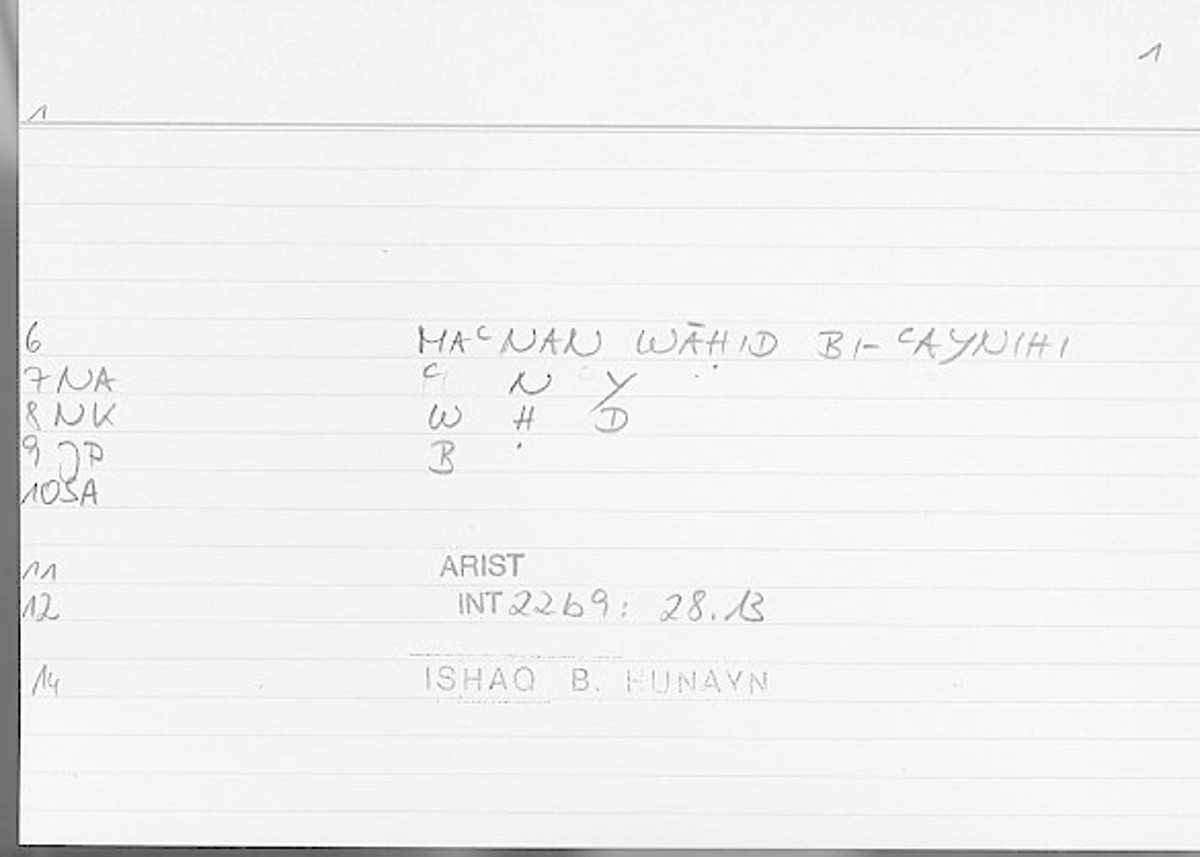 1
1
6 MAᶜNAN WĀḤID BI-ᶜAYNIHI
7 NA ᶜ N Y
8 NK W Ḥ D
9 JP B
10 SA
11 ARIST
12 INT 22b9: 28.13
14 ISHAQ B. HUNAYN